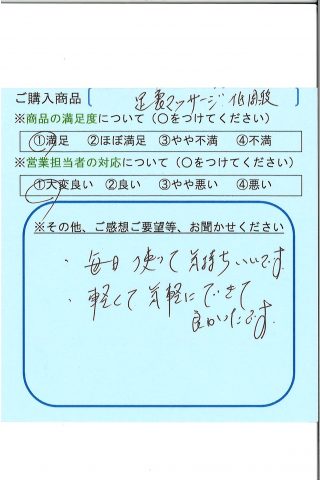 ご購入商品 足裏マッサージ 低周波
※商品の満足度について（〇をつけてください）
①満足 ②ほぼ満足 ③やや不満 ④不満
※営業担当者の対応について（〇をつけてください）
①大変良い ②良い ③やや悪い ④悪い
※その他、ご感想ご要望等、お聞かせください
・毎日使って気持ちいいです。
・軽くて気軽にできて
良かったです。